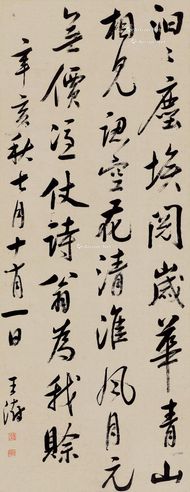 汩〻塵埃閱歲華青山
相見空花清淮風月元
無價憑仗詩翁為我賒
辛亥秋七月十有一日
王澍